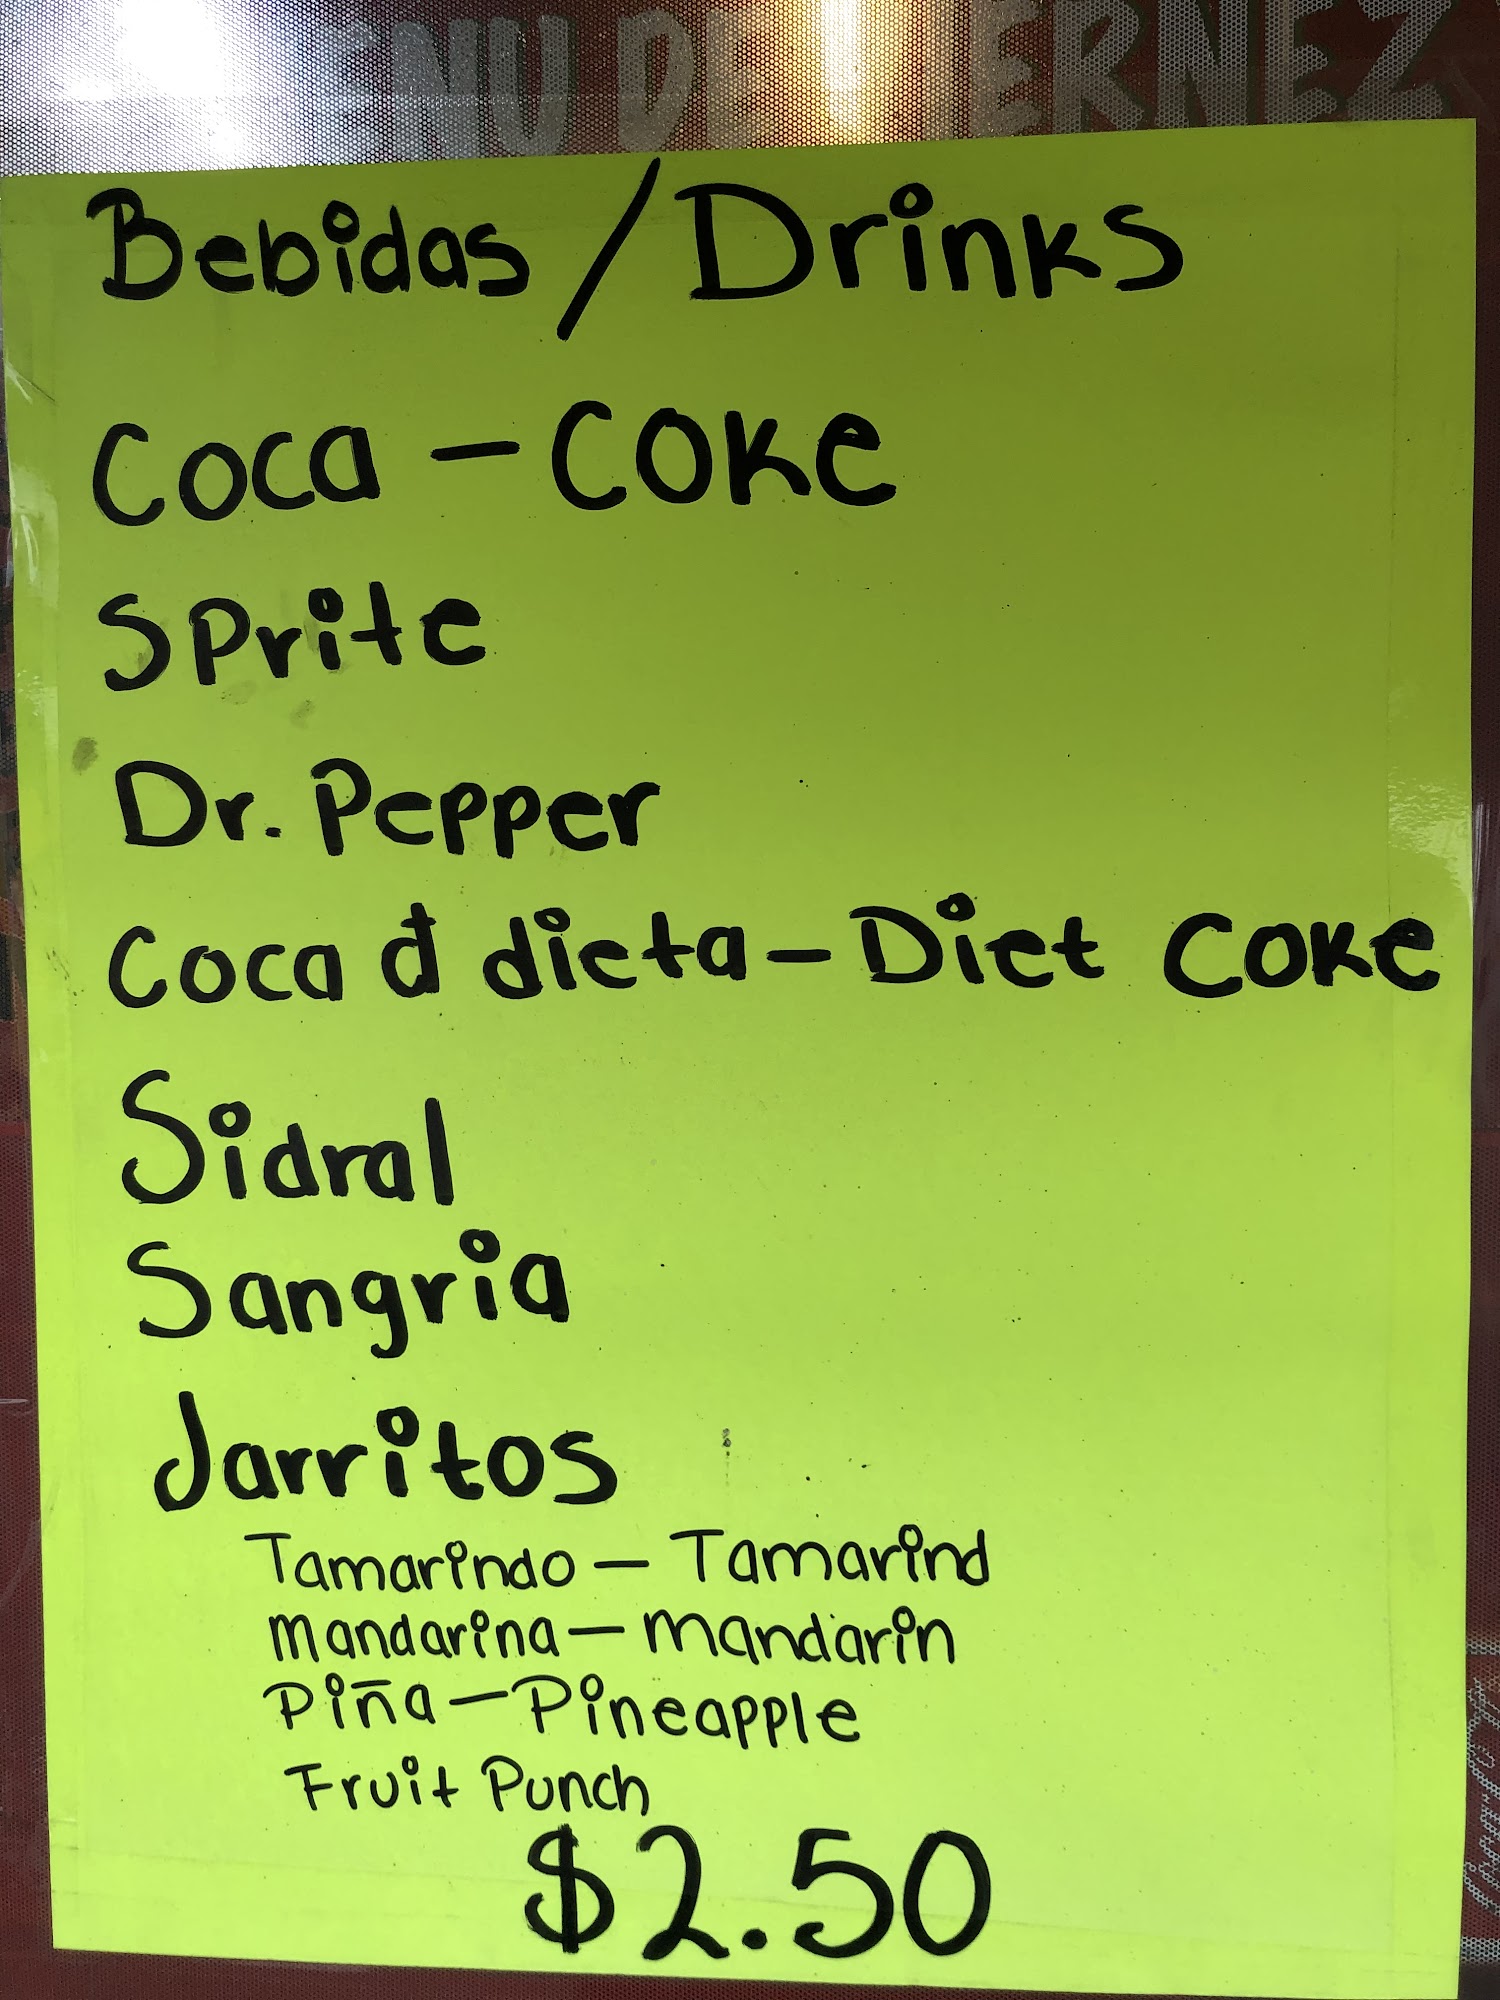 ENU DE IERNEZ
Bebidas / Drinks
Coca - Coke
Sprite
Dr. Pepper
Coca đ dieta - Diet Coke
Sidral
Sangria
Jarritos
Tamarindo - Tamarind
mandarina - mandarin
Piña - Pineapple
Fruit Punch
$2.50